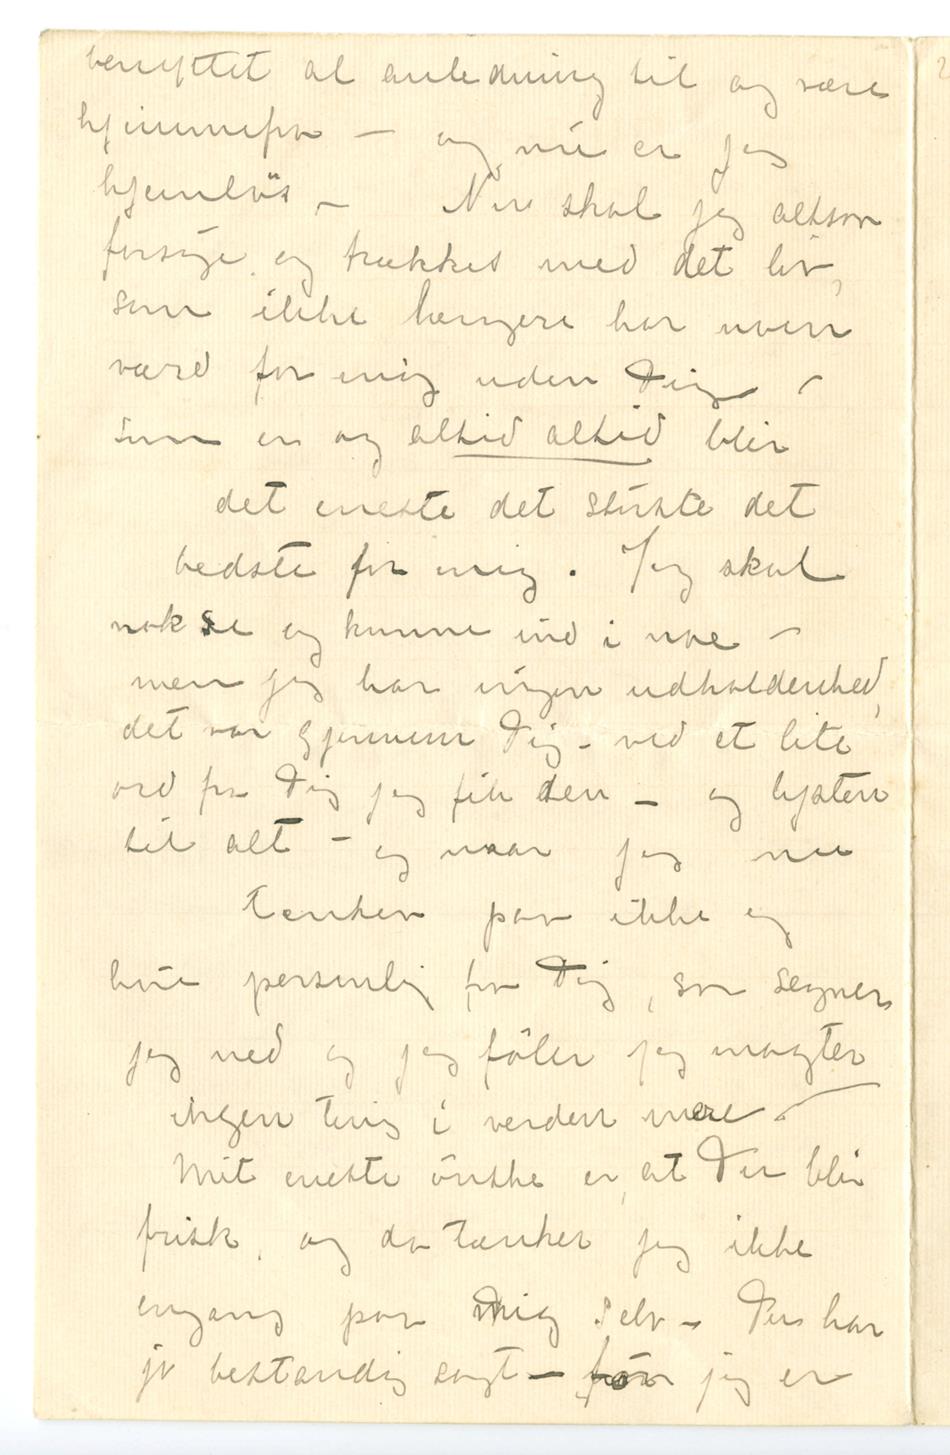 benyttet al anledning til og være
hjemmefra — og nu er jeg
hjemløs — Nu skal jeg altsaa
forsøge og trækkes med det liv,
som ikke længere har noen
værd for mig uden Dig —
som er og altid altid blir
det eneste det største det
bedste for mig. Jeg skal
nok se og komme ind i noe —
men jeg har ingen udholdenhed,
det var gjennem Dig — ved et lite
ord fra Dig jeg fik den — og lysten
til alt — og naar jeg nu
tænker paa ikke og
høre personlig fra Dig, saa segner
jeg ned og jeg føler jeg magter
ingen ting i verden mere —
Mit eneste ønske er, at Du blir
frisk, og da tænker jeg ikke
engang paa mig selv — Du har
jo bestandig sagt — før jeg er